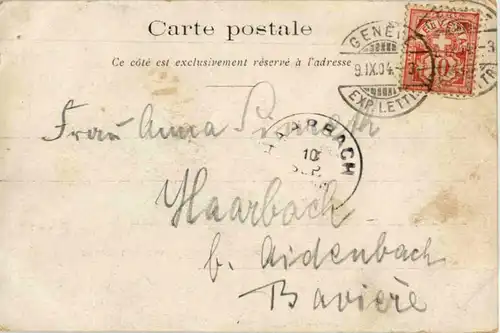 Carte postale
Ce côté est exclusivement réservé à l'adresse
GENÈVE
9.IX.04.
EXP. LETTR
10
Frau Anna
HAARBACH
10
SEP.
Haarbach
b. Aidenbach
Bavière